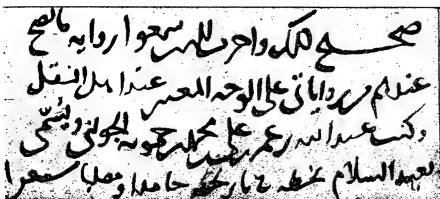 صحيح ذلك واجزت للذين سمعوا رواية ما يصح
عندهم من رواياتي على الوجه المعتبر عند اهل النقل
وكتب عبد الله بن عمر بن علي بن محمد بن حمويه الجويني ويسمى
بعبد السلام بخطه في تاريخه حامدا ومصليا مستغفرا